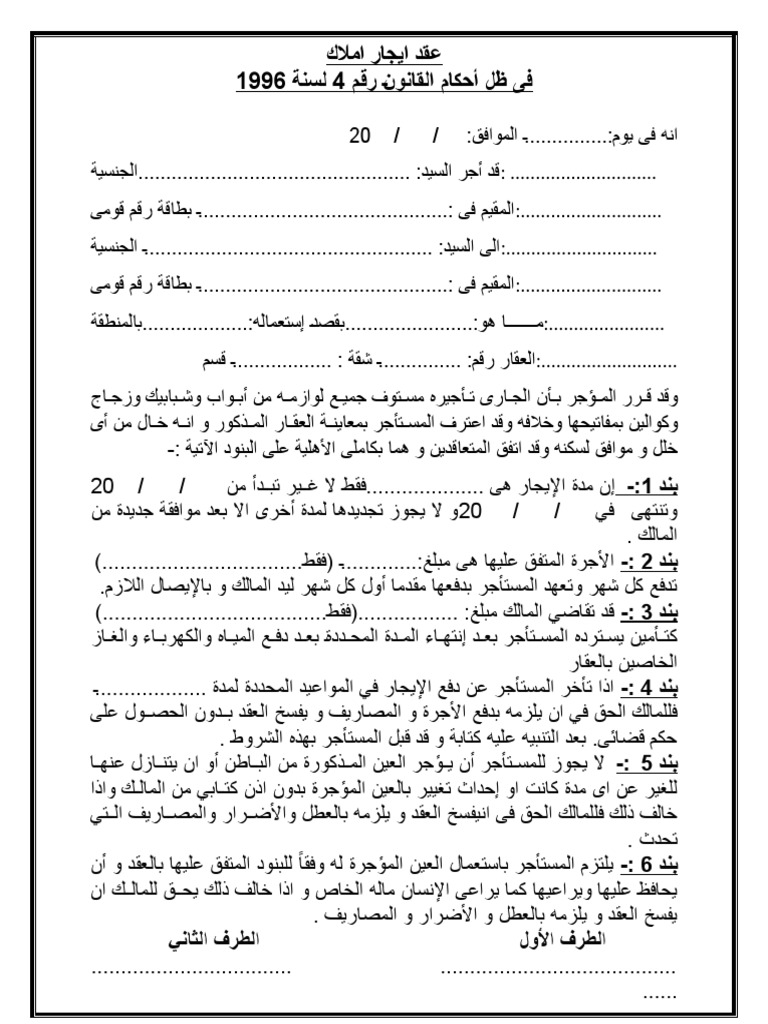 عقد ايجار املاك
فى ظل أحكام القانون رقم 4 لسنة 1996
انه فى يوم:............... الموافق:    /    /    20
.............................. :قد أجر السيد: ................................................الجنسية
.............................:المقيم فى :.............................................. بطاقة رقم قومى
...............................:الى السيد: .................................................... الجنسية
.............................:المقيم فى :.............................................. بطاقة رقم قومى
........................:مـــــا هو:.......................بقصد إستعماله:...................بالمنطقة
............................:العقار رقم: ............... شقة : .................. قسم
وقد قرر المؤجر بأن الجارى تأجيره مستوف جميع لوازمه من أبواب وشبابيك وزجاج
وكوالين بمفاتيحها وخلافه وقد اعترف المستأجر بمعاينة العقار المذكور و انه خال من أى
خلل و موافق لسكنه وقد اتفق المتعاقدين و هما بكاملى الأهلية على البنود الآتية :-
بند 1:- إن مدة الإيجار هى ....................فقط لا غير تبدأ من    /    /    20
وتنتهى في    /    /    20و لا يجوز تجديدها لمدة أخرى الا بعد موافقة جديدة من
المالك .
بند 2 :- الأجرة المتفق عليها هى مبلغ:............. (فقط..................................)
تدفع كل شهر وتعهد المستأجر بدفعها مقدما أول كل شهر ليد المالك و بالإيصال اللازم.
بند 3 :- قد تقاضي المالك مبلغ: .................(فقط......................................)
كتأمين يسترده المستأجر بعد إنتهاء المدة المحددة بعد دفع المياه والكهرباء والغاز
الخاصين بالعقار
بند 4 :- اذا تأخر المستأجر عن دفع الإيجار في المواعيد المحددة لمدة ...................
فللمالك الحق في ان يلزمه بدفع الأجرة و المصاريف و يفسخ العقد بدون الحصول على
حكم قضائى. بعد التنبيه عليه كتابة و قد قبل المستأجر بهذه الشروط .
بند 5 :- لا يجوز للمستأجر أن يؤجر العين المذكورة من الباطن أو ان يتنازل عنها
للغير عن اى مدة كانت او إحداث تغيير بالعين المؤجرة بدون اذن كتابي من المالك واذا
خالف ذلك فللمالك الحق فى انيفسخ العقد و يلزمه بالعطل والأضرار والمصاريف التي
تحدث .
بند 6 :- يلتزم المستأجر باستعمال العين المؤجرة له وفقاً للبنود المتفق عليها بالعقد و أن
يحافظ عليها ويراعيها كما يراعى الإنسان ماله الخاص و اذا خالف ذلك يحق للمالك ان
يفسخ العقد و يلزمه بالعطل و الأضرار و المصاريف .
الطرف الأول    الطرف الثاني
........................................    ..................................
......